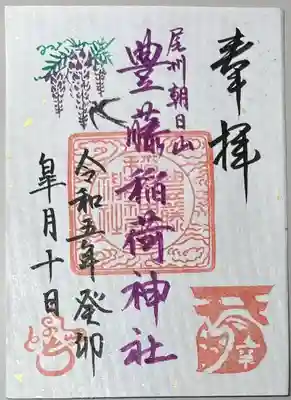 奉拝
尾州朝日山
豊藤稲荷神社
令和五年癸卯
皐月十日